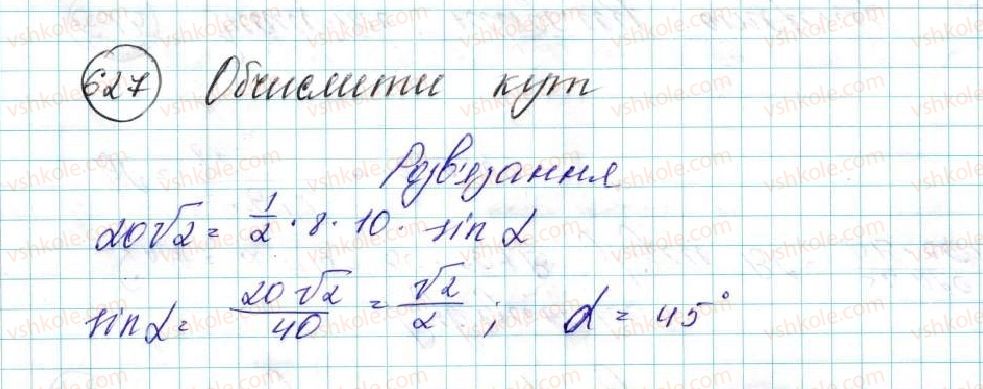 627 Обчислити кут
Розв'язання
20√2 = 1/2 · 8 · 10 · sin α
sin α = 20√2/40 = √2/2 ; α = 45°